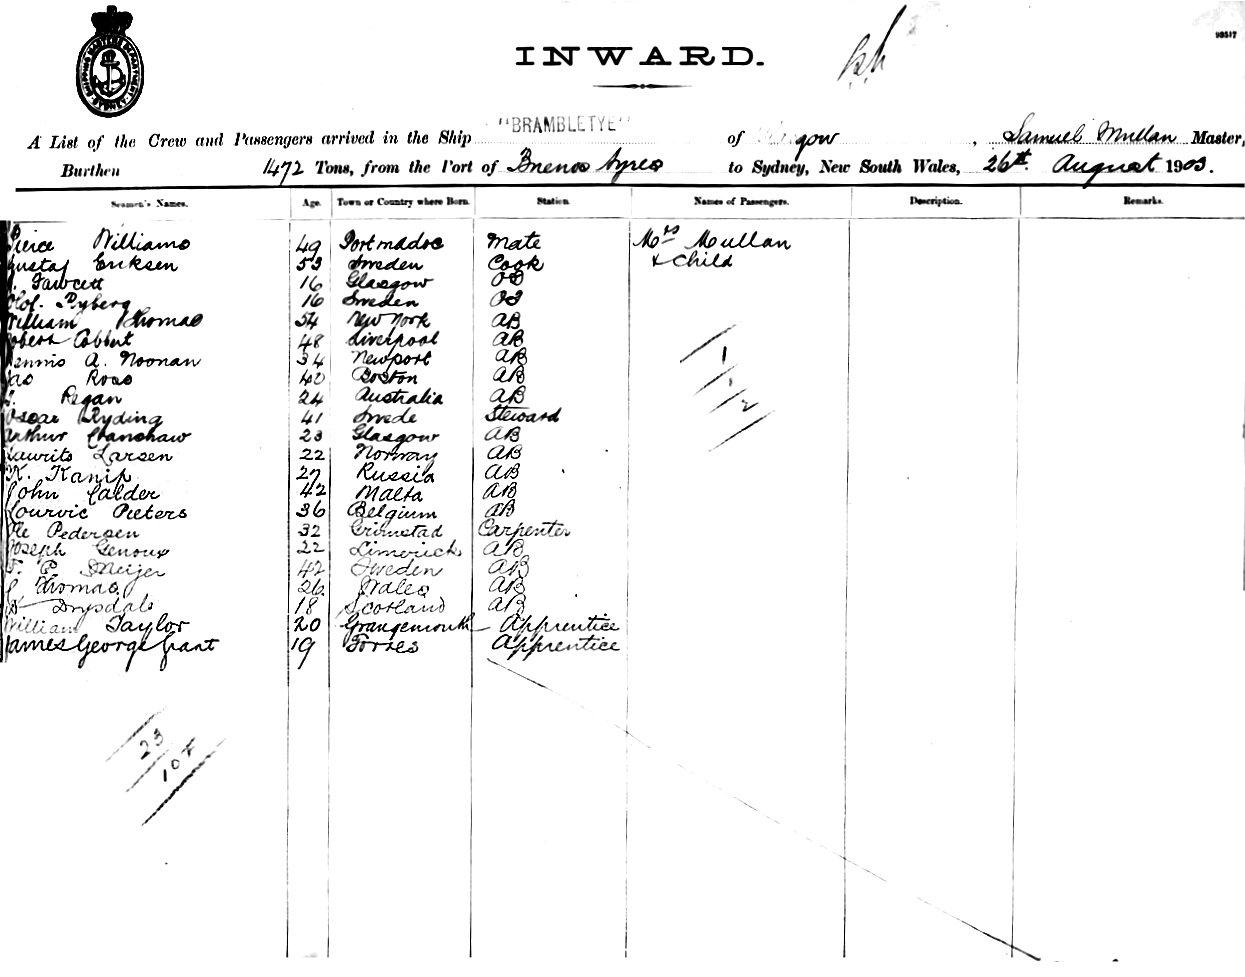 INWARD.
93517
A List of the Crew and Passengers arrived in the Ship "BRAMBLETYE" of gow, Samuel Mullan Master,
Burthen 1472 Tons, from the Port of Buenos Ayres to Sydney, New South Wales, 26th August 1903.
Seamen's Names. Age. Town or Country where Born. Station. Names of Passengers. Description. Remarks.
Pierce Williams 49 Portmadoc Mate Mrs Mullan
Gustaf Eriksen 53 Sweden Cook & Child
Fawcett 16 Glasgow OS
Olof. Ryberg 16 Sweden OS
William Thomas 54 New York AB
Robert Cobbert 48 Liverpool AB
Dennis A. Noonan 34 Newport AB
Jas Ross 40 Boston AB
Regan 24 Australia AB
Oscar Ryding 41 Swede Steward
Arthur Cranshaw 23 Glasgow AB
Laurits Larsen 22 Norway AB
K. Kanip 27 Russia AB
John Calder 42 Malta AB
Lourvic Pieters 36 Belgium AB
Ole Pedersen 32 Grimstad Carpenter
Joseph Genoux 22 Limerick AB
F. P. Meijer 42 Sweden AB
J. Thomas 26 Wales AB
Drysdale 18 Scotland AB
William Taylor 20 Grangemouth Apprentice
James George Grant 19 Forres Apprentice
1
1/2
23
10